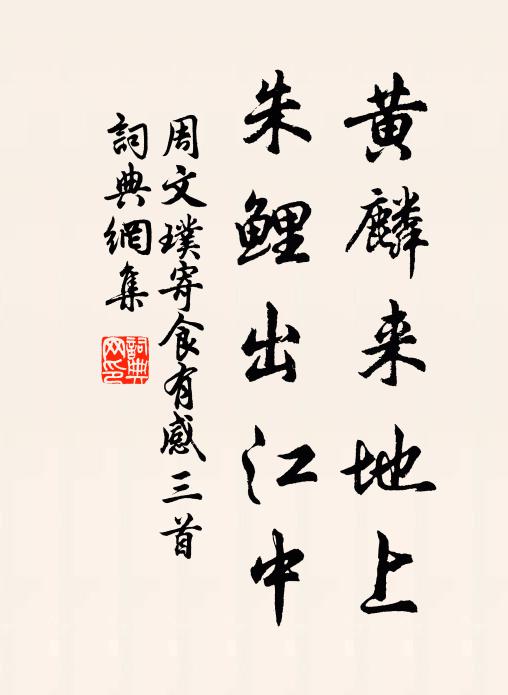 黄麟来地上
朱鲤出江中
周文璞寄食有感三首
詞典網集
詞典网印